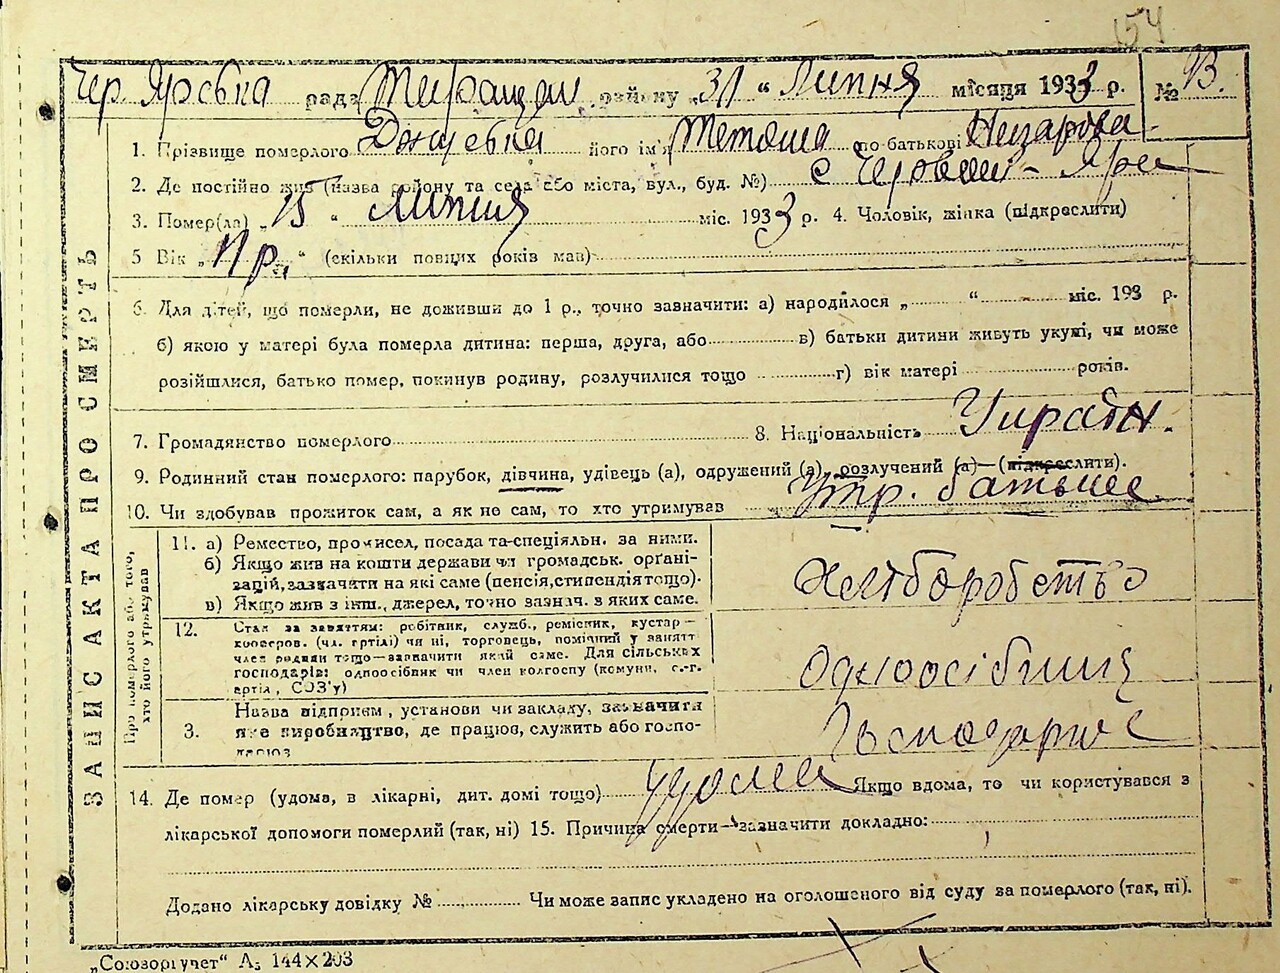 154
Чер. Ярська рада Тиращан. району „31“ Липня місяця 1933 р. № 93.
1. Прізвище померлого його ім'я Тетяна по батькові Назарова
2. Де постійно жив (назва району та села або міста, вул., буд. №) с Червоний-Яр
3. Помер(ла) „15“ Липня міс. 1933 р. 4. Чоловік, жінка (підкреслити)
5 Вік „11 р.“ (скільки повних років мав)
6. Для дітей, що померли, не доживши до 1 р., точно зазначити: а) народилося „ “ міс. 193 р.
б) якою у матері була померла дитина: перша, друга, або в) батьки дитини живуть укупі, чи може
розійшлися, батько помер, покинув родину, розлучилися тощо г) вік матері років.
7. Громадянство померлого 8. Національність Україн.
9. Родинний стан померлого: парубок, дівчина, удівець (а), одружений (а), розлучений (а)—(підкреслити).
10. Чи здобував прожиток сам, а як не сам, то хто утримував Утр. батьки
ЗАПИС АКТА ПРО СМЕРТЬ
Про померлого або того,
хто його утримував
11. а) Ремество, промисел, посада та спеціяльн. за ними.
б) Якщо жив на кошти держави чи громадськ. орґані-
зацій, зазначити на які саме (пенсія, стипендія тощо).
в) Якщо жив з інш., джерел, точно зазнач. з яких саме.
Хліборобство
12. Стан за заняттям: робітник, служб., ремісник, кустар—
кооперов. (чл. артілі) чи ні, торговець, помічний у занятт
член родини тощо—зазначити який саме. Для сільських
господарів: одноосібник чи член колгоспу (комуни, с.-г.
артіл, СОЗ'у)
Одноосібниц
3. Назва підприєм, установи чи закладу, зазначити
яке виробництво, де працює, служить або госпо-
дарює
14. Де помер (удома, в лікарні, дит. домі тощо) удома Якщо вдома, то чи користувався з
лікарської допомоги померлий (так, ні) 15. Причина смерти—зазначити докладно:
Додано лікарську довідку № Чи може запис укладено на оголошеного від суду за померлого (так, ні).
„Союзоргучет“ А₅ 144×203